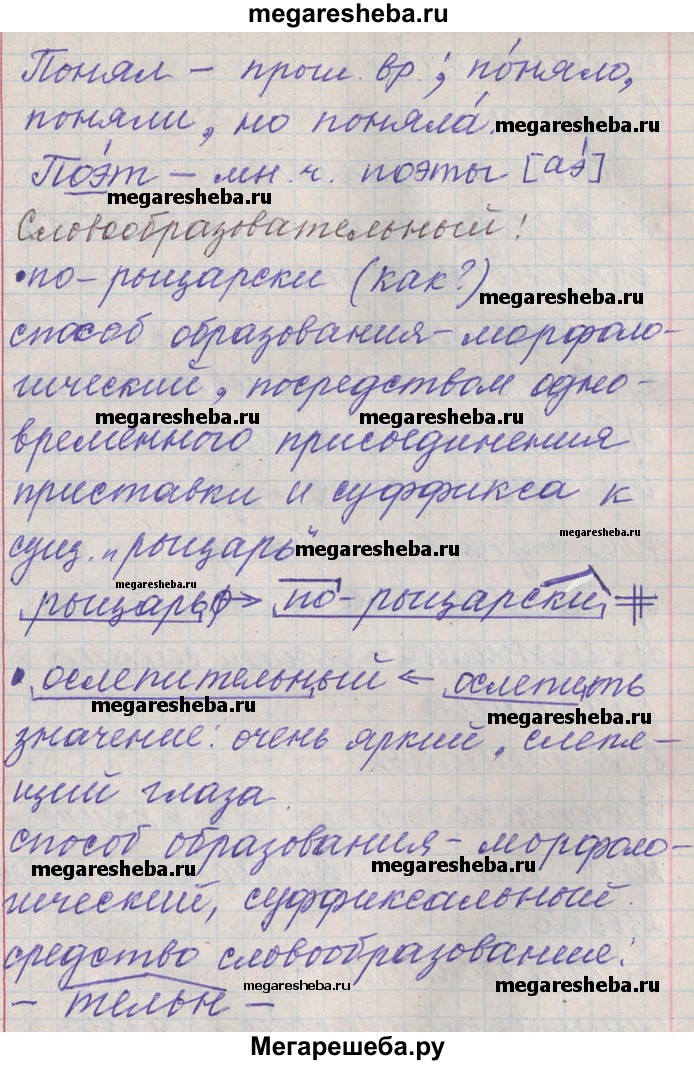 megaresheba.ru
Понял – прош. вр.; по́няло,
поняли, но поняла́.
megaresheba.ru
megaresheba.ru
По́эт – мн. ч. поэты [аэ́]
megaresheba.ru
Словообразовательный!
• по-рыцарски (как?)
megaresheba.ru
способ образования – морфоло-
гический, посредством одно-
megaresheba.ru megaresheba.ru
временного присоединения
приставки и суффикса к
megaresheba.ru
сущ. „рыцарь"
megaresheba.ru
megaresheba.ru
рыцарь → по-рыцарски
• ослепительный ← ослепить
megaresheba.ru
megaresheba.ru
значение: очень яркий, слепя-
щий глаза.
способ образования – морфоло-
megaresheba.ru megaresheba.ru
гический, суффиксальный.
средство словообразование:
megaresheba.ru megaresheba.ru
– тельн –
Мегарешеба.ру